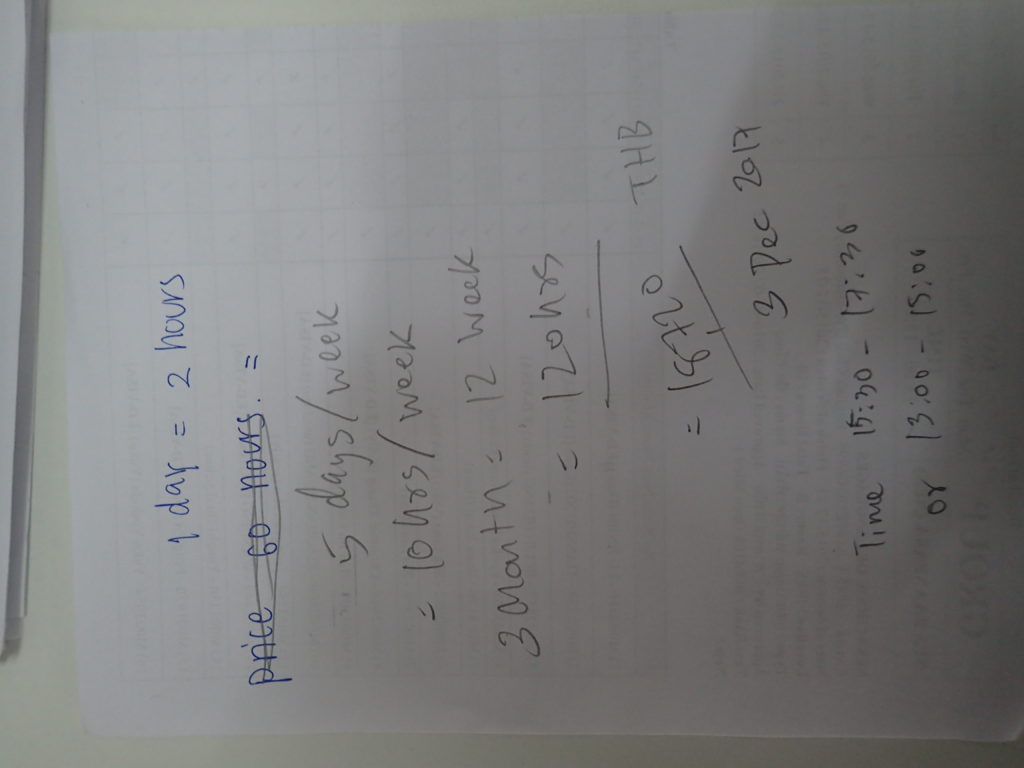 1 day = 2 hours
price 60 hours. =
5 days/week
= 10 hrs/week
3 Month = 12 week
= 120 hrs
= 18720 THB
3 Dec 2017
Time 15:30 - 17:30
or 13:00 - 15:00